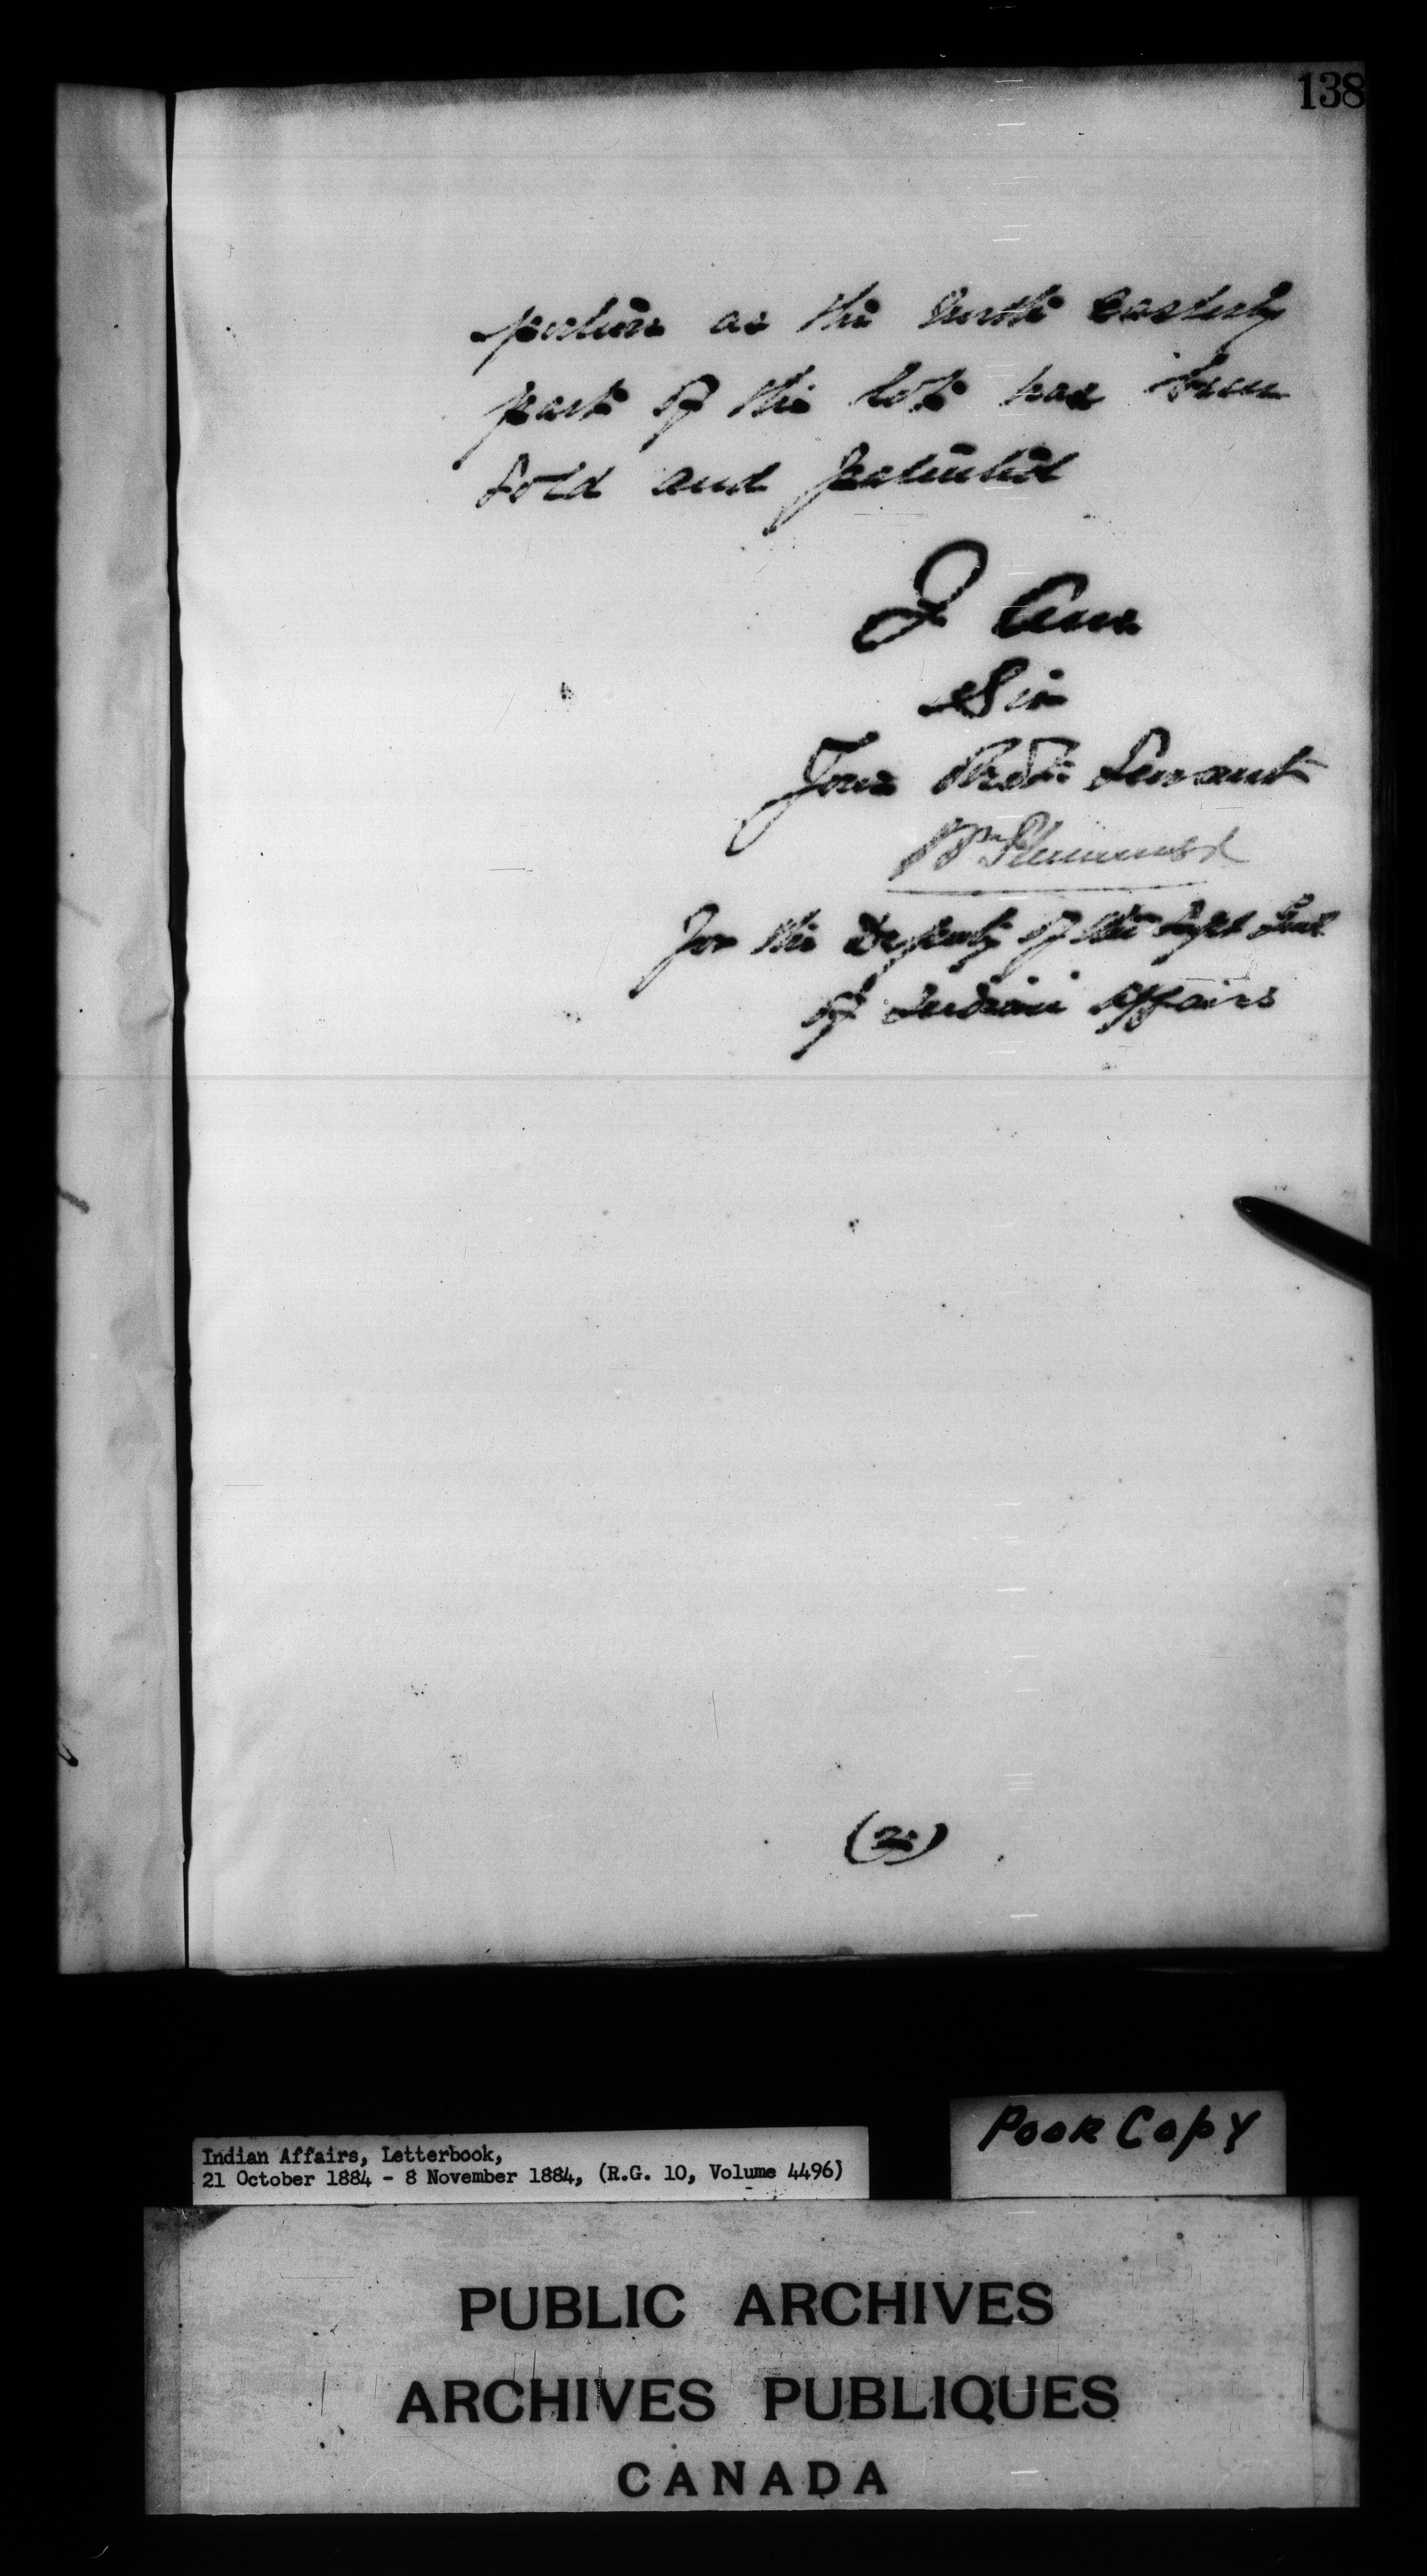 138
portion as the North Easterly
part of the lot has been
sold and patented
I am
Sir
Your Obdt Servant
Wm Plummer
for the Deputy of the Supt Genl
of Indian Affairs
(2)
Poor Copy
Indian Affairs, Letterbook,
21 October 1884 - 8 November 1884, (R.G. 10, Volume 4496)
PUBLIC ARCHIVES
ARCHIVES PUBLIQUES
CANADA